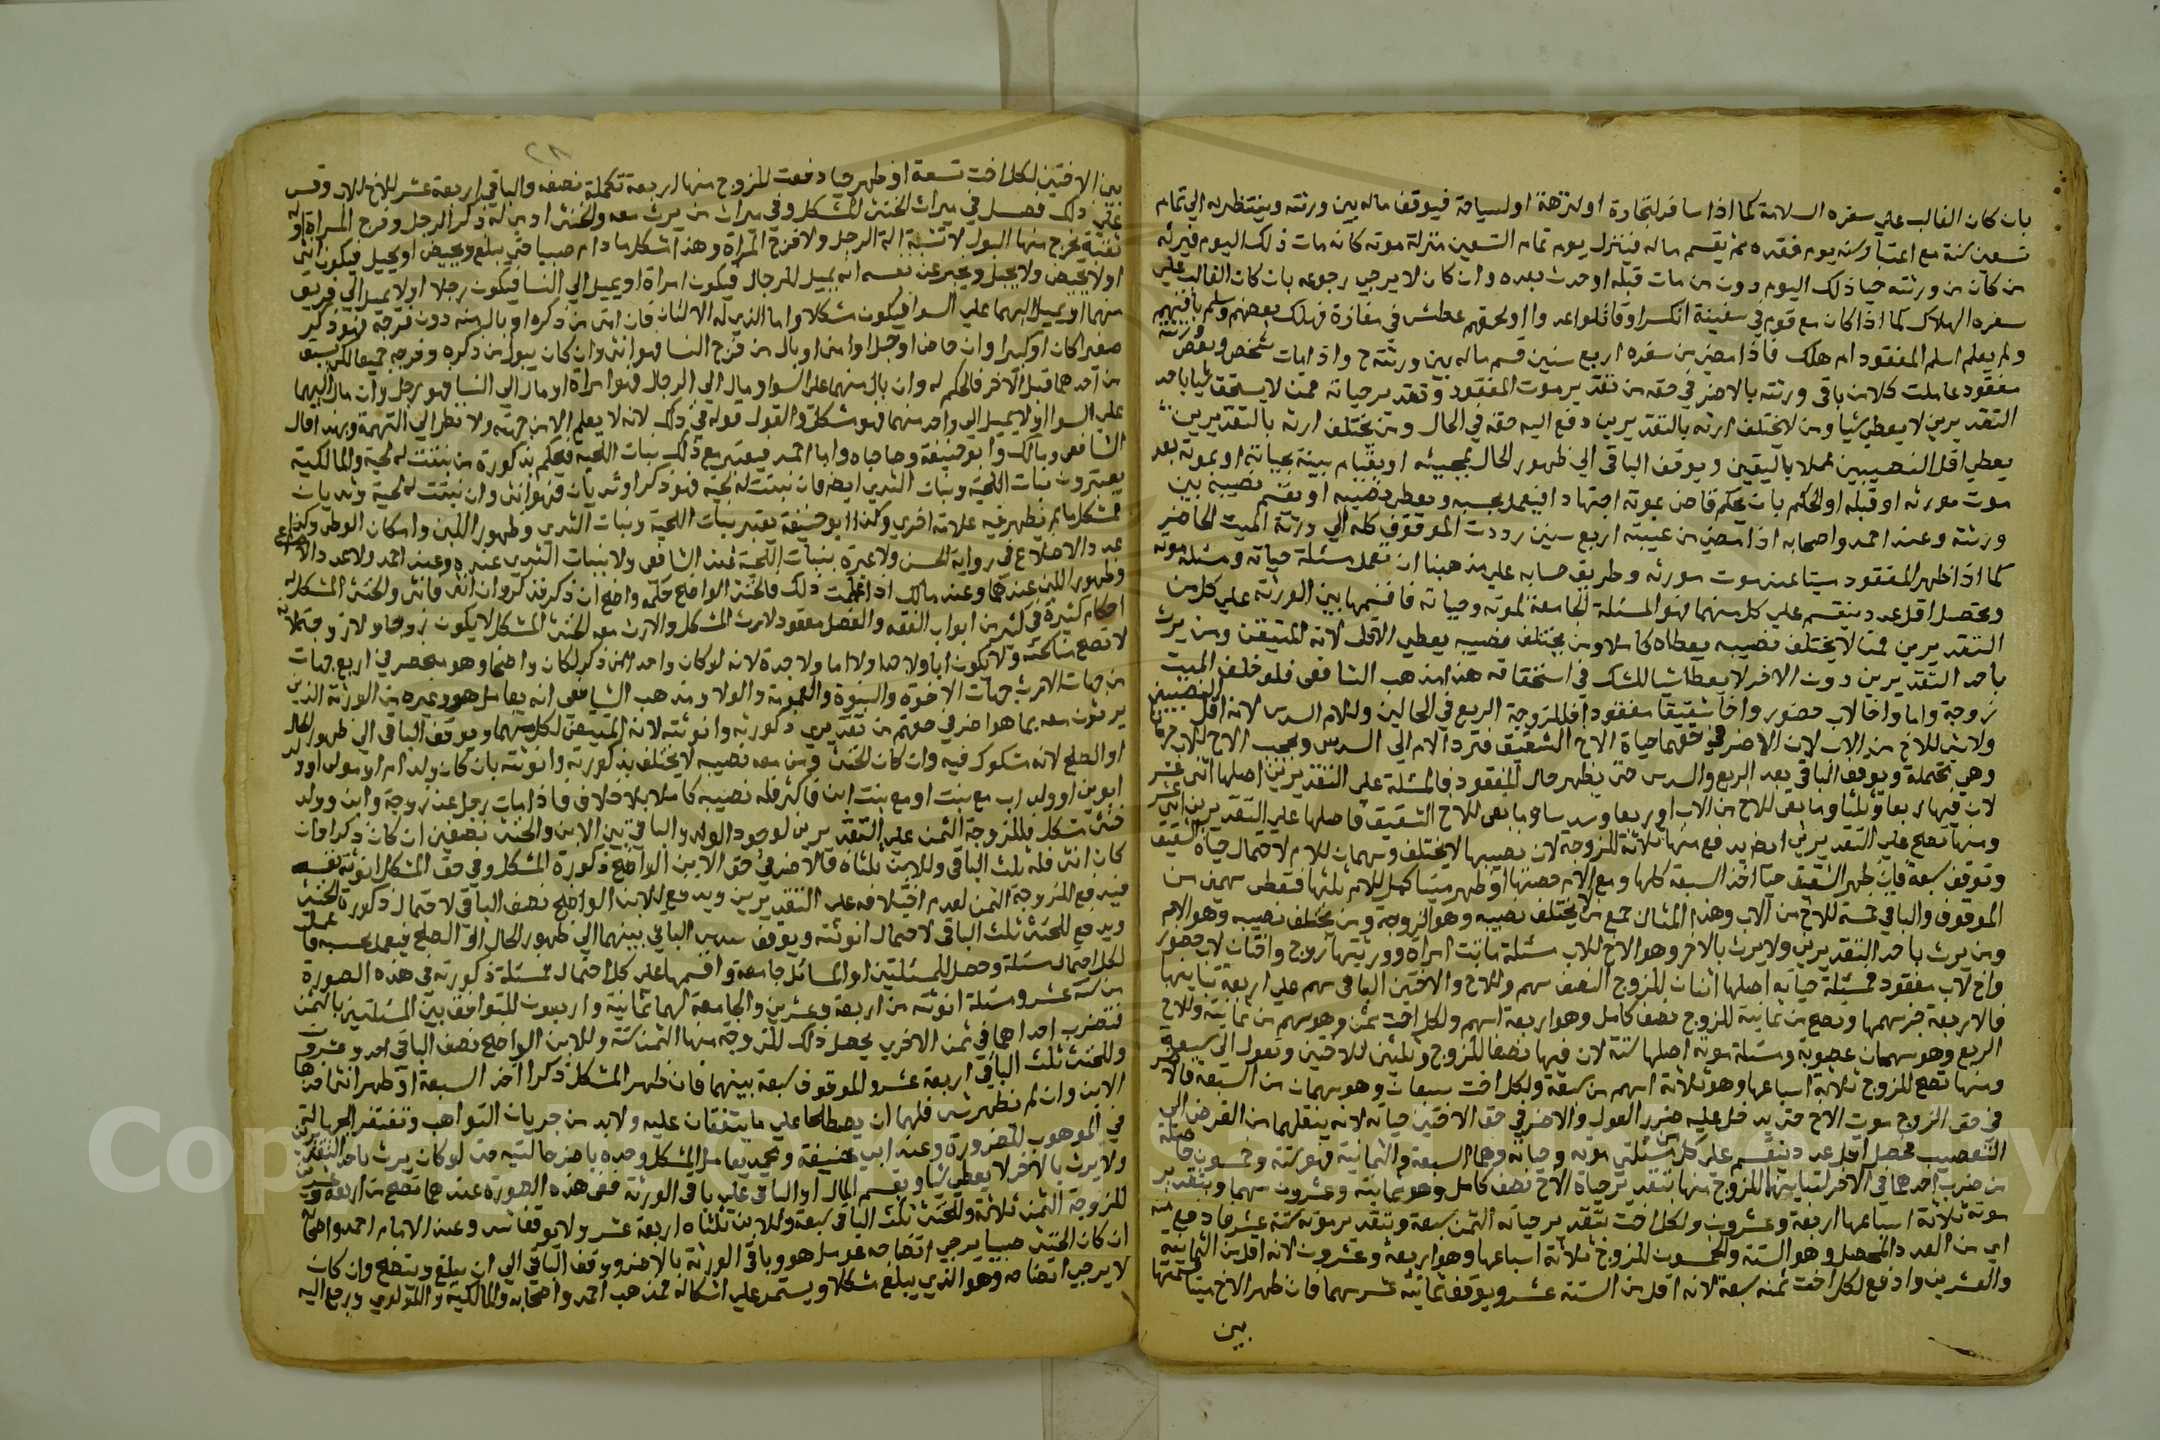 بان كان الغالب علي سفره السلامة كما اذا سافر لتجارة او لنزهة او لسياحة فيوقف ماله بين ورثته وينتظر به الي تمام
تسعين سنة مع اعتبار سنه يوم فقده ثم يقسم ماله فينزل يوم تمام التسعين منزلة موته كانه مات ذلك اليوم فيرثه
من كان من ورثته حيا ذلك اليوم دون من مات قبله او حدث بعده وان كان لا يرجي رجوعه بان كان الغالب علي
سفره الهلاك كما اذا كان مع قوم في سفينة انكسر او قاتلوا عدوا او لحقهم عطش في مفازة فهلك بعضهم وسلم باقيهم
ولم يعلم اسلم المفقود ام هلك فاذا مضي من سفره اربع سنين قسم ماله بين ورثته ح واذا مات شخص وبعض ورثته
مفقود عاملت كلا من باقي ورثته بالاضر في حقه من تقدير موت المفقود وتقدير حياته فمن لا يستحق شيا باحد
التقديرين لا يعطي شيا ومن لا يختلف ارثه بالتقديرين دفع اليه حقه في الحال ومن يختلف ارثه بالتقديرين
يعطي اقل النصيبين عملا باليقين ويوقف الباقي الي ظهور الحال بمجيئه او بقيام بينة بحياته او بموته بعد
موت مورثه او قبله او الحكم بان يحكم قاض بموته اجتهادا فيعمل بحسبه ويعطي نصيبه او يقسم نصيبه بين
ورثته وعند احمد واصحابه اذا مضي من غيبته اربع سنين رددت الموقوف كله الي ورثة الميت الحاضر
كما اذا ظهر المفقود ميتا عند موت مورثه وطريق حسابه علي مذهبنا ان تعمل مسئلة حياته ومسئلة موته
وتحصل اقل عدد ينقسم علي كل منهما فهو المسئلة الجامعة لموته وحياته فاقسمها بين الورثة علي كل من
التقديرين فمن لا يختلف نصيبه يعطاه كاملا ومن يختلف نصيبه يعطي الاقل لانه المتيقن ومن يرث
باحد التقديرين دون الاخر لا يعطا شيا للشك في استحقاقه هذا مذهب الشافعي فلو خلف الميت
زوجة واما واخا لاب حضور واخا شقيقا مفقودا فللزوجة الربع في الحالين وللام السدس لانه اقل النصيبين
ولا شي للاخ من الاب لان الاضر في حقهما حياة الاخ الشقيق فترد الام الي السدس ويحجب الاخ للاب
وهي محتملة ويوقف الباقي بعد الربع والسدس حتي يظهر حال المفقود فالمسئلة علي التقديرين اصلها اثني عشر
لان فيها ربعا وثلثا وما بقي للاخ من الاب او ربعا وسدسا وما بقي للاخ الشقيق فاصلها علي التقديرين اثني عشر
ومنها تصح علي التقديرين ايضا يدفع منها ثلاثة للزوجة لان نصيبها لا يختلف وسهمان للام لاحتمال حياة الشقيق
وتوقف سبعة فان ظهر الشقيق حيا اخذ السبعة كلها ومع الام حصتها او ظهر ميتا كمل للام ثلثها فتعطي سهمين من
الموقوف والباقي خمسة للاخ من الاب وهذا المثال جمع من لا يختلف نصيبه وهو الزوجة ومن يختلف نصيبه وهو الام
ومن يرث باحد التقديرين ولا يرث بالاخر وهو الاخ للاب مسئلة ماتت امراة وورثتها زوج واختان لاب حضور
واخ لاب مفقود فمسئلة حياته اصلها اثنان للزوج النصف سهم وللاخ والاختين الباقي سهم علي اربعة تباينها
فالاربعة جزء سهمها وتصح من ثمانية للزوج نصف كامل وهو اربعة اسهم ولكل اخت ثمن وهو سهم من ثمانية وللاخ
الربع وهو سهمان عصوبة ومسئلة موته اصلها ستة لان فيها نصفا للزوج وثلثين للاختين وتعول الي سبعة
ومنها تصح للزوج ثلاثة اسباعها وهو ثلاثة اسهم من سبعة ولكل اخت سبعان وهو سهمان من السبعة فالاضر
في حق الزوج موت الاخ حتي يدخل عليه ضرر العول والاضر في حق الاختين حياته لانه ينقلهما من الفرض الي
التعصيب فحصل اقل عدد ينقسم علي كل من مسئلتي موته وحياته وهما السبعة والثمانية فهو ستة وخمسون حاصلة
من ضرب احدهما في الاخر لتباينهما للزوج منها بتقدير حياة الاخ نصف كامل وهو ثمانية وعشرون سهما وبتقدير
موته ثلاثة اسباعها اربعة وعشرون ولكل اخت بتقدير حياته الثمن سبعة وبتقدير موته ستة عشر فادفع منه
اي من العدد المحصل وهو الستة والخمسون للزوج ثلاثة اسباعها وهو اربعة وعشرون لانه اقل من الثمانية
والعشرين وادفع لكل اخت ثمنه سبعة لانه اقل من الستة عشر ويوقف ثمانية عشر سهما فان ظهر الاخ ميتا
بين
بين الاختين لكل اخت تسعة او ظهر حيا دفعت للزوج منها اربعة تكملة نصفه والباقي اربعة عشر للاخ للاب وقس
علي ذلك فصل في ميراث الخنثي المشكل وفي ميراث من يرث معه والخنثي ادمي له ذكر الرجل وفرج المراة او له
ثقبة يخرج منها البول لا تشبه الة الرجل ولا فرج المراة وهذا مشكل ما دام صبيا حتي يبلغ ويحيض او يحبل فيكون انثي
او لا يحيض ولا يحبل ويخبر عن نفسه انه يميل للرجال فيكون امراة او يميل الي النسا فيكون رجلا او لا يميل الي فريق
منهما او يميل اليهما علي السوا فيكون مشكلا واما الذي له الالتان فان امني من ذكره او بال منه دون فرجه فهو ذكر
صغيرا كان او كبيرا وان حاض او حبل او امني او بال من فرج النسا فهو انثي وان كان يبول من ذكره وفرجه جميعا لكن يسبق
من احدهما قبل الاخر فالحكم له وان بال منهما علي السوا ومال الي الرجال فهو امراة او مال الي النسا فهو رجل وان مال اليهما
علي السوا او لا يميل الي واحد منهما فهو مشكل والقول قوله في ذلك لانه لا يعلم الا من جهته ولا نظر الي التهمة وبهذا قال
الشافعي ومالك وابو حنيفة وصاحباه واما احمد فيعتبر مع ذلك نبات اللحية فحكم بذكورة من نبتت له لحية والمالكية
يعتبرون نبات اللحية ونبات الثدي ايضا فان نبتت له لحية فهو ذكر او ثديان فهو انثي وان نبتت له لحية وثديان
فمشكل ما لم يظهر فيه علامة اخري وكذا ابو حنيفة يعتبر نبات اللحية ونبات الثدي وظهور اللبن وامكان الوطي وكذا
عدد الاضلاع في رواية الحسن ولا عبرة بنبات اللحية عند الشافعي ولا بنبات الثدي عنده وعند احمد ولا عدد الاضلاع
وظهور اللبن عندهما وعند مالك اذا علمت ذلك فالخنثي الواضح حكمه واضح ان ذكر فذكر وان انثي فانثي والخنثي المشكل له
احكام كثيرة في كثير من ابواب الفقه والفصل معقود لارث المشكل والارث معه الخنثي المشكل لا يكون زوجا ولا زوجة لانه
لا تصح مناكحته ولا يكون ابا ولا جدا ولا اما ولا جدة لانه لو كان واحدا ممن ذكر لكان واضحا وهو منحصر في اربع جهات
من جهات الارث جهات الاخوة والبنوة والعمومة والولا ومذهب الشافعي انه يعامل هو وغيره من الورثة الذين
يرثون معه بما هو اضر في حقهم من تقديري ذكورته وانوثته لانه المتيقن لكل منهما ويوقف الباقي الي ظهور الحال
او الصلح لانه مشكوك فيه وان كان الخنثي ومن معه نصيبه لا يختلف بذكورته وانوثته بان كان ولد ام او مولي او ولد
ابوين او ولد اب مع بنت او مع بنت ابن فاكثر فله نصيبه كاملا بلا خلاف فاذا مات رجل عن زوجة وابن وولد
خنثي مشكل فللزوجة الثمن علي التقديرين لوجود الولد والباقي بين الابن والخنثي نصفين ان كان ذكرا وان
كان انثي فله ثلث الباقي وللابن ثلثاه فالاضر في حق الابن الواضح ذكورة المشكل وفي حق المشكل انوثة نفسه
فيدفع للزوجة الثمن لعدم اختلافه علي التقديرين ويدفع للابن الواضح نصف الباقي لاحتمال ذكورة الخنثي
ويدفع للخنثي ثلث الباقي لاحتمال انوثته ويوقف سدس الباقي بينهما الي ظهور الحال او الصلح فيعمل بحسبه فاعمل
لكل احتمال مسئلة وحصل للمسئلتين او المسائل جامعة واقسمها علي كل احتمال فمسئلة ذكورته في هذه الصورة
من ستة عشر ومسئلة انوثته من اربعة وعشرين والجامعة لهما ثمانية واربعون للتوافق بين المسئلتين بالثمن
فتضرب احداهما في ثمن الاخري يحصل ذلك للزوجة منها الثمن ستة وللابن الواضح نصف الباقي احد وعشرون
وللخنثي ثلث الباقي اربعة عشر والموقوف سبعة بينهما فان ظهر المشكل ذكرا اخذ السبعة او ظهر انثي اخذها
الابن وان لم تظهر شي فلهما ان يصطلحا علي ما يتفقان عليه ولا بد من جريان التواهب وتغتفر الجهالة
في الموهوب للضرورة وعند ابي حنيفة ومحمد يعامل المشكل وحده باضر حالتيه حتي لو كان يرث باحد التقديرين
ولا يرث بالاخر لا يعطي شيا ويقسم المال او الباقي علي باقي الورثة ففي هذه الصورة عندهما تصح من اربعة وعشرين
للزوجة الثمن ثلاثة وللخنثي ثلث الباقي سبعة وللابن ثلثاه اربعة عشر ولا يوقف شي وعند الامام احمد واصحابه
ان كان الخنثي صبيا يرجي اتضاحه عومل هو وباقي الورثة بالاضر ووقف الباقي الي ان يبلغ ويتضح وان كان
لا يرجي اتضاحه وهو الذي يبلغ مشكلا ويستمر علي اشكاله فمذهب احمد واصحابه والمالكية واللؤلؤي ورجع اليه
Copyright © King Saud University